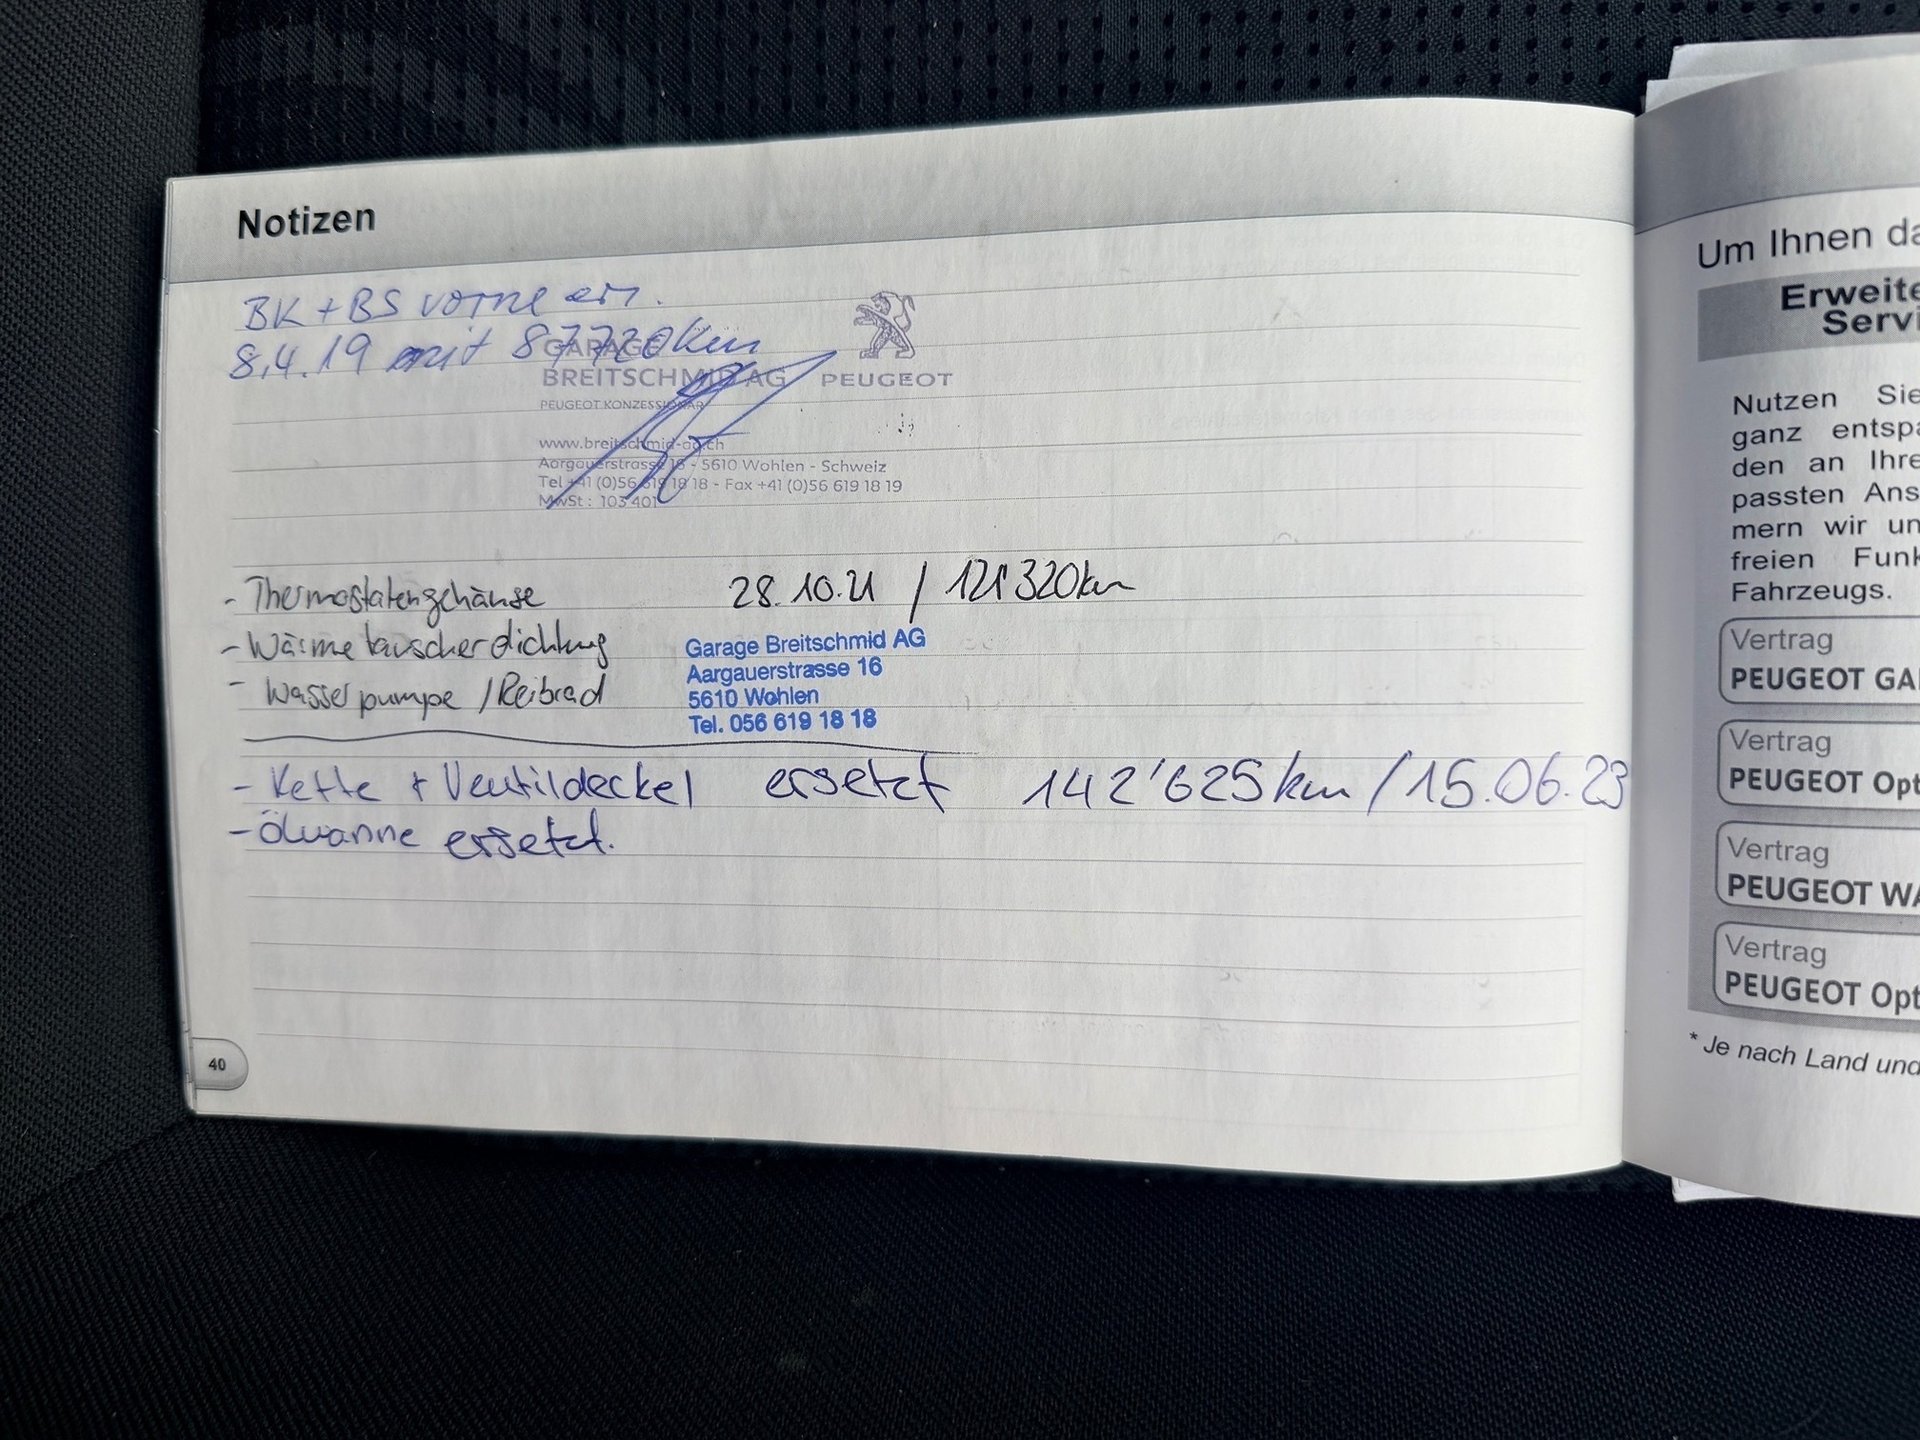 Notizen
BK + BS vorne ern.
8.4.19 mit 87720km
GARAGE
BREITSCHMID AG PEUGEOT
PEUGEOT KONZESSIONÄR
www.breitschmid-ag.ch
Aargauerstrasse 16 - 5610 Wohlen - Schweiz
Tel +41 (0)56 619 18 18 - Fax +41 (0)56 619 18 19
MwSt : 103 401
- Thermostatengehäuse 28.10.21 / 121'320km
- Wärmetauscherdichtung
- Wasserpumpe / Reibrad
Garage Breitschmid AG
Aargauerstrasse 16
5610 Wohlen
Tel. 056 619 18 18
- Kette + Ventildeckel ersetzt 142'625km / 15.06.23
- Ölwanne ersetzt.
40
Um Ihnen da
Erweite
Servi
Nutzen Sie
ganz entspa
den an Ihre
passten Ans
mern wir un
freien Funk
Fahrzeugs.
Vertrag
PEUGEOT GA
Vertrag
PEUGEOT Opt
Vertrag
PEUGEOT WA
Vertrag
PEUGEOT Opt
* Je nach Land und